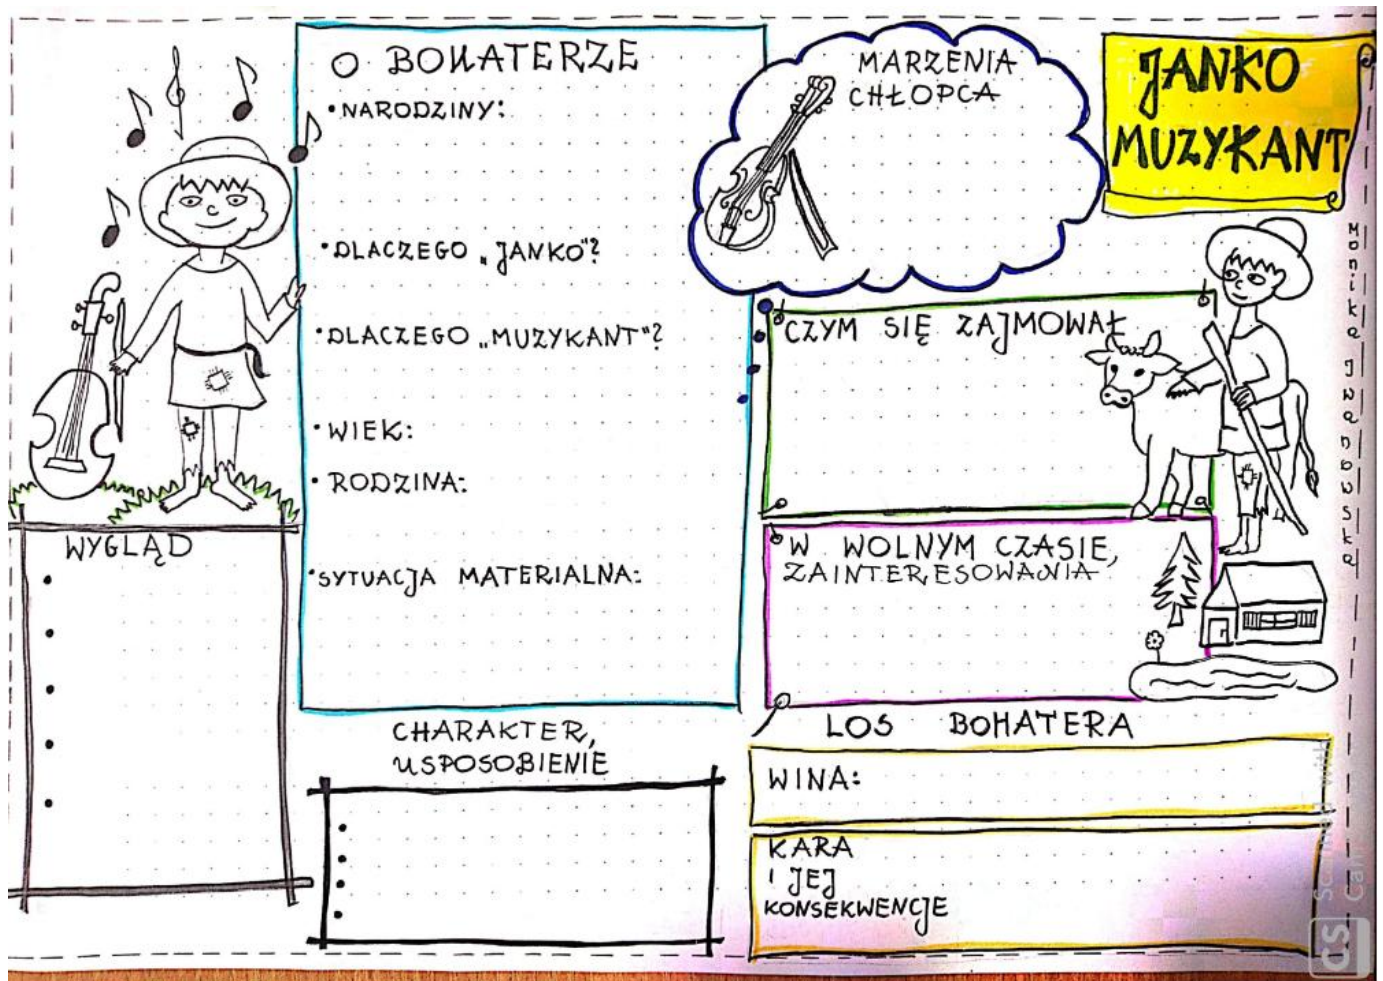 O BOHATERZE
• NARODZINY:
• DLACZEGO „JANKO"?
• DLACZEGO „MUZYKANT"?
• WIEK:
• RODZINA:
• SYTUACJA MATERIALNA:
MARZENIA
CHŁOPCA
JANKO
MUZYKANT
CZYM SIĘ ZAJMOWAŁ
W WOLNYM CZASIE,
ZAINTERESOWANIA
WYGLĄD
CHARAKTER,
USPOSOBIENIE
LOS BOHATERA
WINA:
KARA
I JEJ
KONSEKWENCJE
Monika Iwanowska
CS